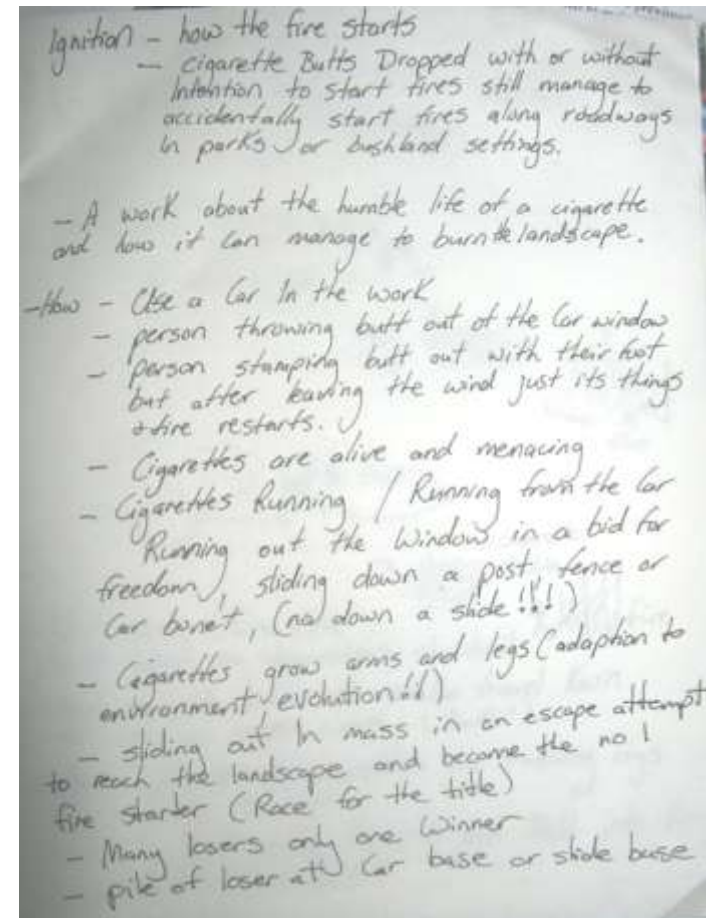 Ignition - how the fire starts
- cigarette Butts Dropped with or without
Intention to start fires still manage to
accidentally start fires along roadways
in parks or bushland settings.
- A work about the humble life of a cigarette
and how it can manage to burn the landscape.
- How - Use a Car In the work
- person throwing butt out of the Car window
- person stamping butt out with their foot
but after leaving the wind just its things
+ fire restarts.
- Cigarettes are alive and menacing
- Cigarettes Running / Running from the Car
Running out the Window in a bid for
freedom, sliding down a post, fence or
Car bonet, (no down a slide!!!)
- Cigarettes grow arms and legs (adaption to
environment evolution!!)
- sliding out In mass in an escape attempt
to reach the landscape and become the no 1
fire starter (Race for the title)
- Many losers only one Winner
- pile of loser at Car base or slide base